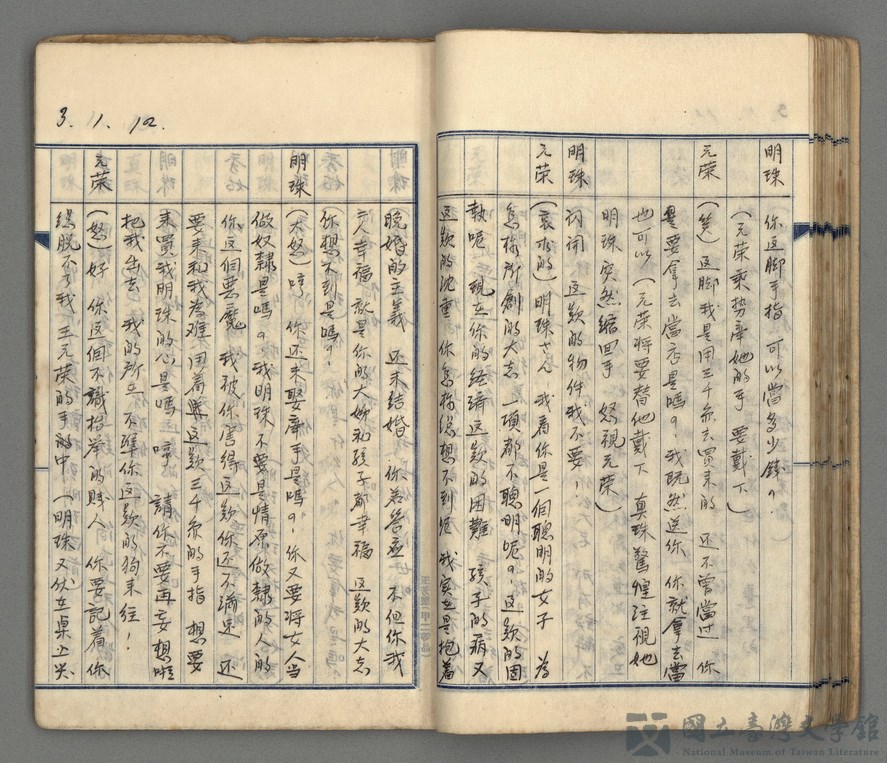 明珠 你这脚手指 可以當多少錢？
（元荣乘势牽她的手 要戴下）
元荣 （笑）这脚我是用三千余去買来的 还不曾當过 你
是要拿去當店是嗎？，我既然送你 你就拿去當
也可以（元荣将要替他戴下 真珠驚惶注視她
明珠突然縮回手 怒視元荣）
明珠 閃開 这款的物件我不要！，
元荣 （哀求的）明珠さん 我看你是一個聰明的女子 為
怎樣所創的大志 一項都不聰明呢？，这款的固
執呢 現在你的经濟这款的困難 孩子的病又
这款的沈重 你怎樣總想不到呢 我实在是抱着
晚婚的主義 还未结婚 你若答应 不但你我
二人幸福 就是你的大娘和孩子都幸福 这款的大志
你想不到是嗎？，
明珠 （大怒）哼 你还未娶牽手是嗎？，你又要将女人当
做奴隸是嗎？我明珠不要是情原做隸的人的
你这個悪魔 我被你害得这款你还不滿足 还
要来和我為难 用着 这款三千余的手指 想要
来買我明珠的心是嗎 哼 請你不要再妄想啦
把我出去 我的所在 不準你这款的狗来经！
元荣 （怒）好 你这個不識抬举的贱人 你要記着 你
總脱不了我 王元荣的手的中（明珠又伏在桌上哭
3. 1. 12.
國立臺灣文學館
National Museum of Taiwan Literature